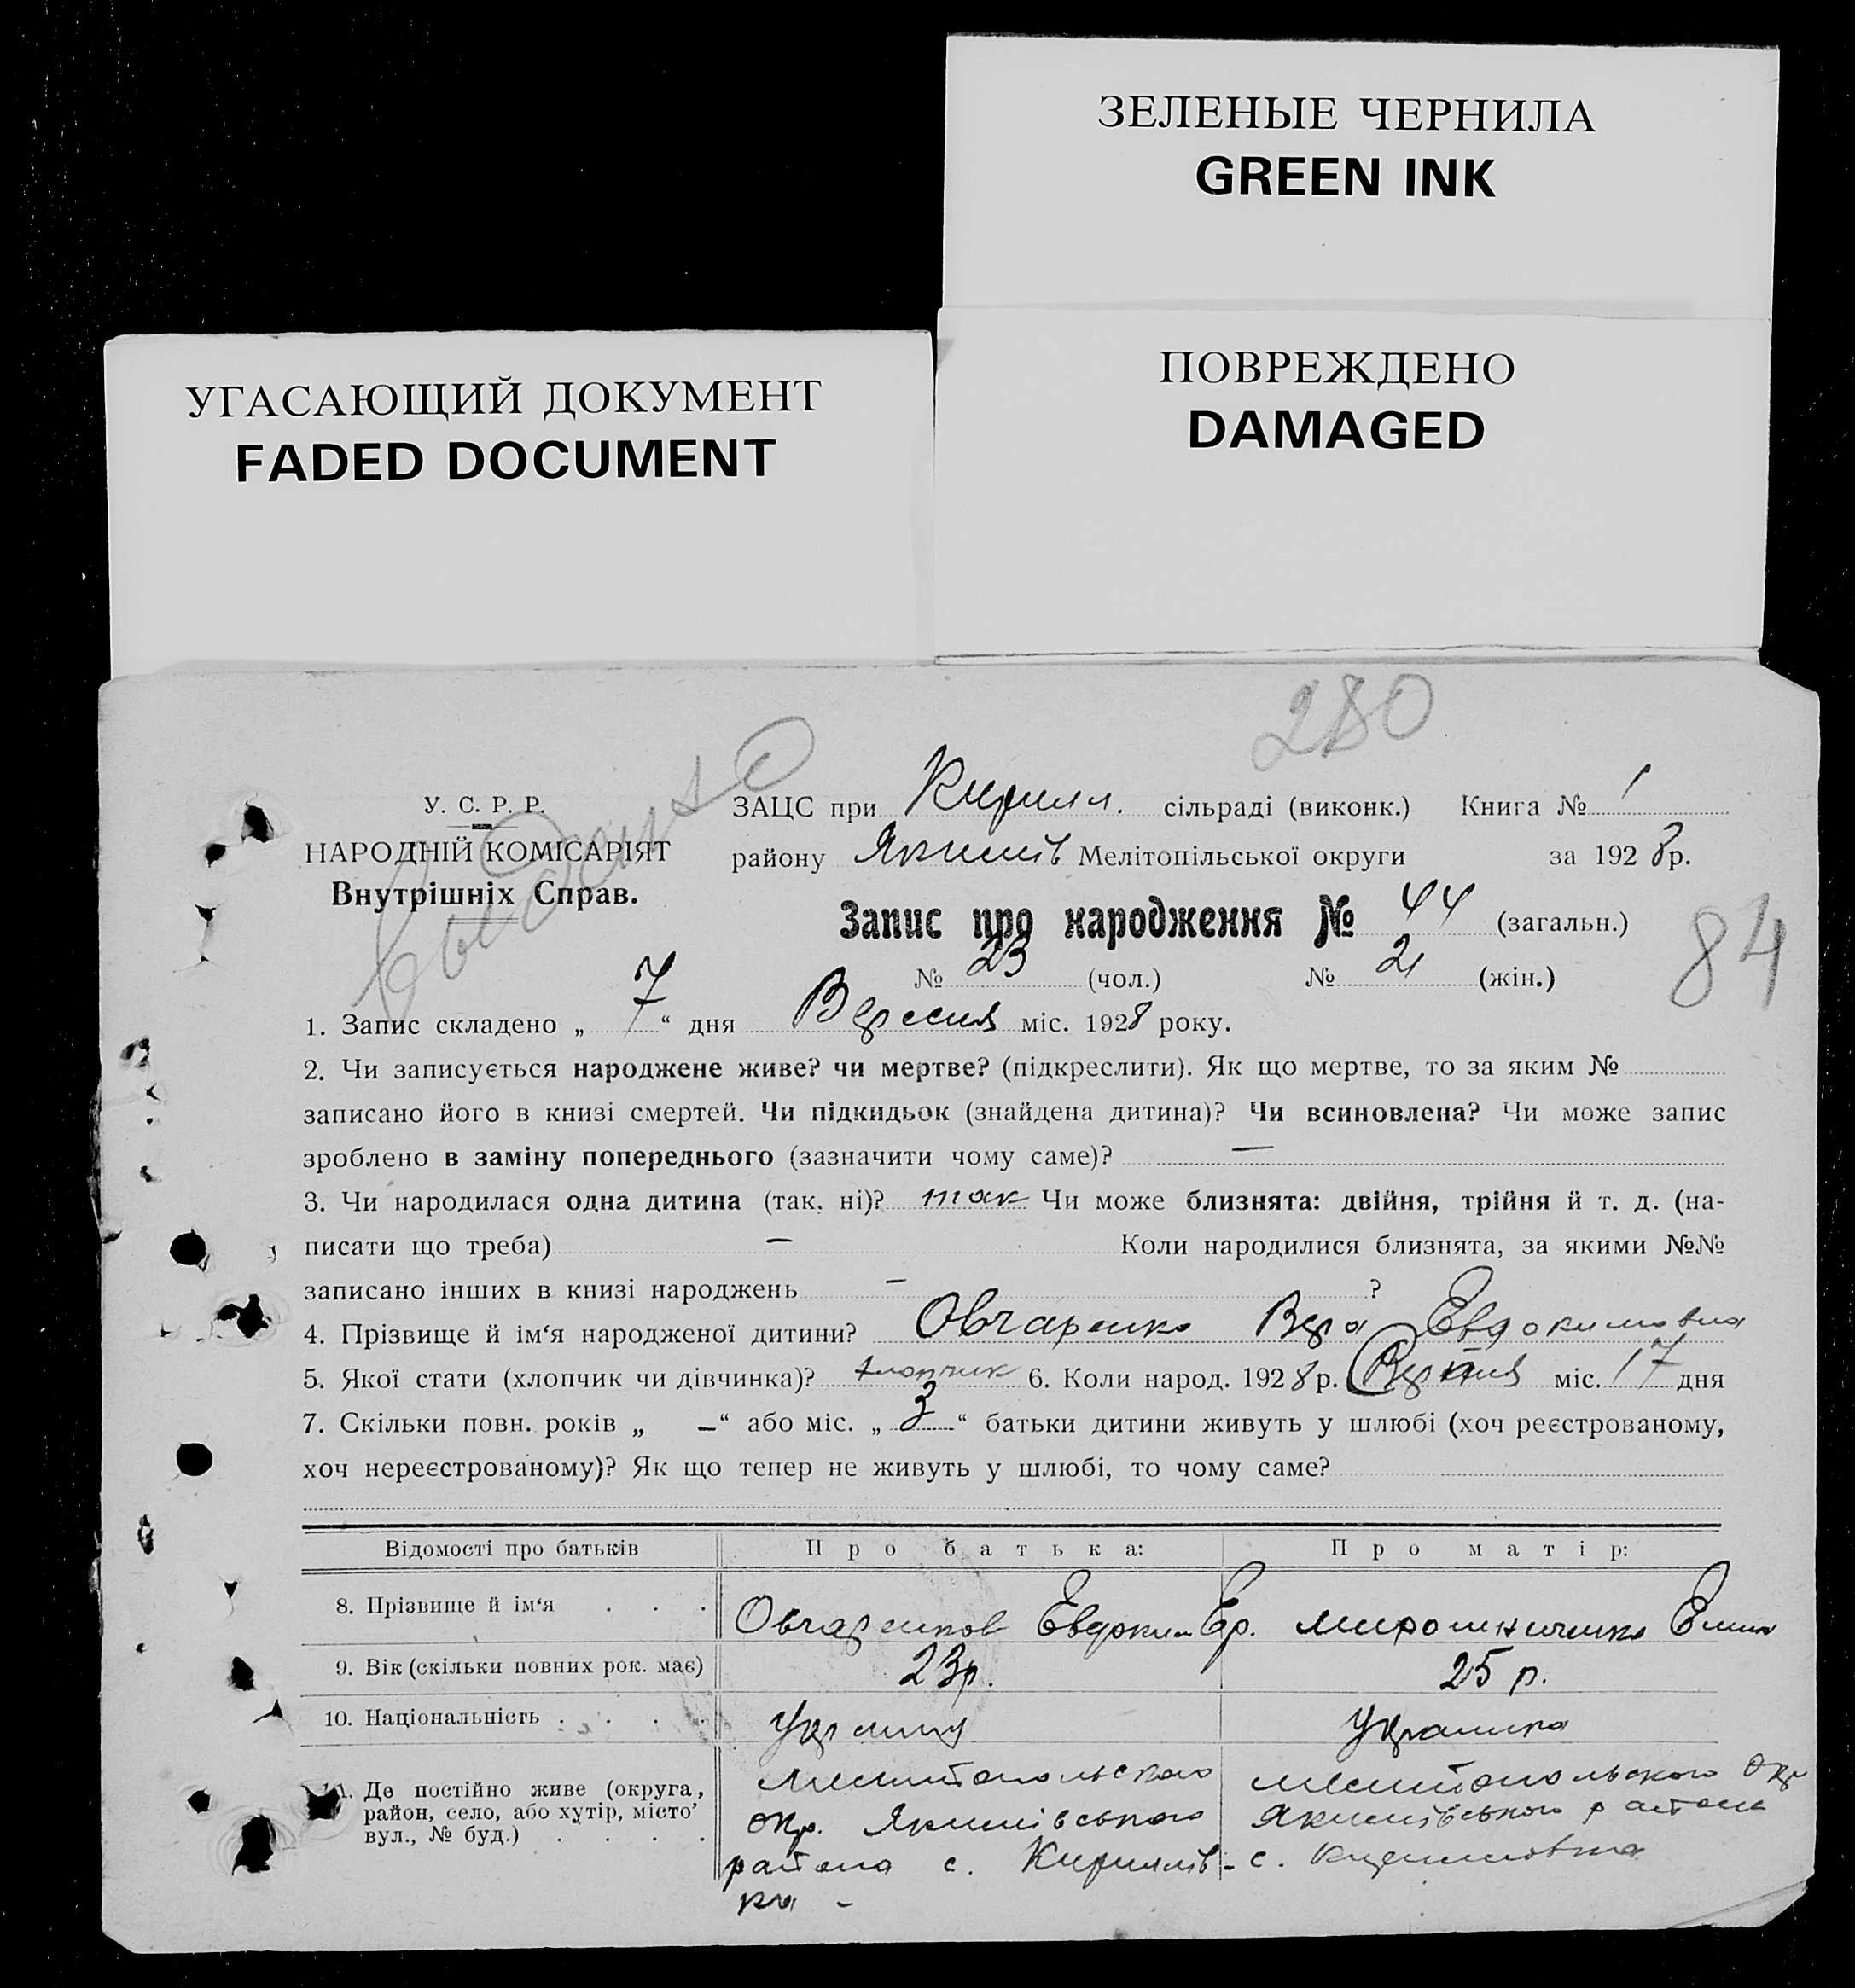 ЗЕЛЕНЫЕ ЧЕРНИЛА
GREEN INK
ПОВРЕЖДЕНО
DAMAGED
УГАСАЮЩИЙ ДОКУМЕНТ
FADED DOCUMENT
280
У. С. Р. Р.
НАРОДНІЙ КОМІСАРІЯТ
Внутрішніх Справ.
ЗАЦС при Кирилл. сільраді (виконк.) Книга № 1
району Якимів Мелітопільської округи за 1928 р.
Запис про народження № 44 (загальн.)
84
№ 23 (чол.) № 21 (жін.)
1. Запис складено „ 7 “ дня Вересня міс. 1928 року.
2. Чи записується народжене живе? чи мертве? (підкреслити). Як що мертве, то за яким №
записано його в книзі смертей. Чи підкидьок (знайдена дитина)? Чи всиновлена? Чи може запис
зроблено в заміну попереднього (зазначити чому саме)? —
3. Чи народилася одна дитина (так, ні)? так Чи може близнята: двійня, трійня й т. д. (на-
писати що треба) — Коли народилися близнята, за якими №№
записано інших в книзі народжень — ?
4. Прізвище й ім‘я народженої дитини? Овчаренко Вера Евдокимовна
5. Якої стати (хлопчик чи дівчинка)? хлопчик 6. Коли народ. 1928 р. міс. 17 дня
7. Скільки повн. років „ —“ або міс. „ 3 “ батьки дитини живуть у шлюбі (хоч реєстрованому,
хоч нереєстрованому)? Як що тепер не живуть у шлюбі, то чому саме?
Відомості про батьків Про батька: Про матір:
8. Прізвище й ім‘я . . . Овчаренков Евдоким Гр. Мирошниченко
9. Вік (скільки повних рок. має) 23 р. 25 р.
10. Національність . . . . Українец Українка
11. Де постійно живе (округа,
район, село, або хутір, місто
вул., № буд.) . . . .
Мелитопольского
окр. Якимівського
района с. Кирилів-
ка -
Мелитопольского Окр
Якимівського района
с. Кирилловка